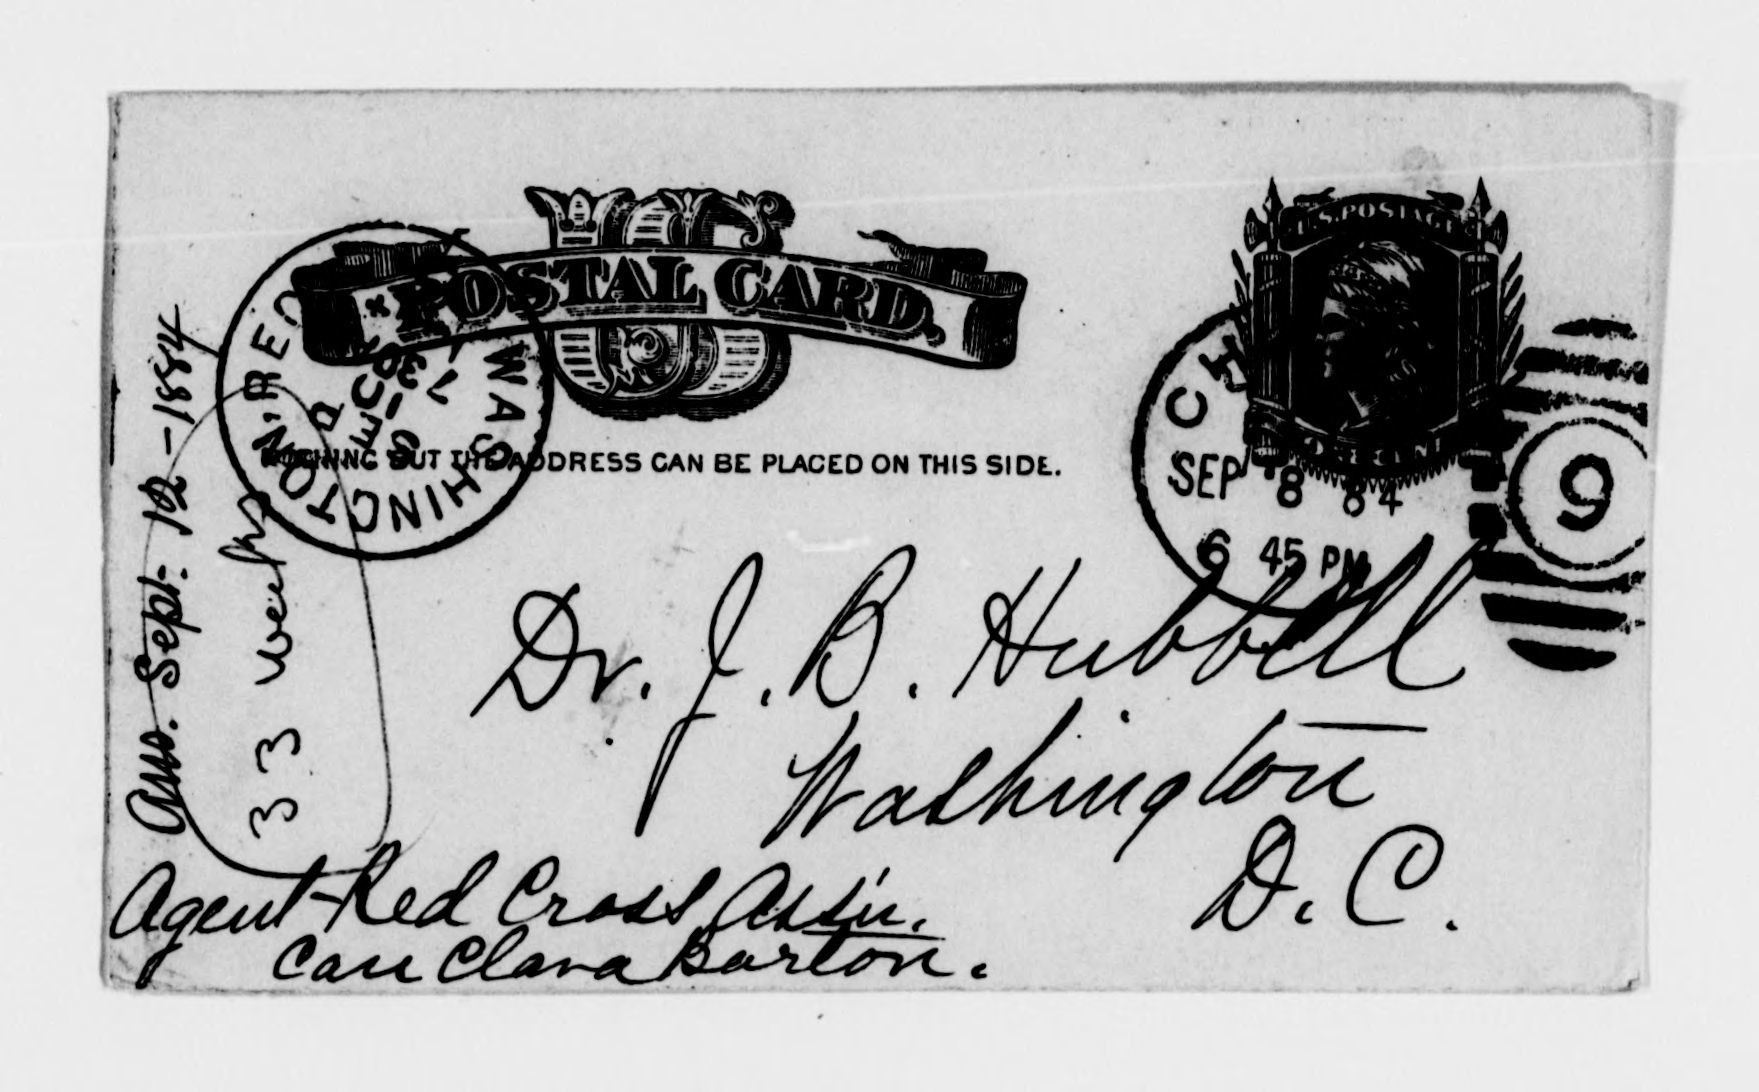 U.S. POSTAGE
US
POSTAL CARD.
NOTHING BUT THE ADDRESS CAN BE PLACED ON THIS SIDE.
WASHINGTON, REC'D
7 30
1884
CH
SEP 8 84
6 45 PM
9
Dr. J. B. Hubbell
Washington
D. C.
Agent Red Cross Ass'n.
Care Clara Barton.
Ans. Sept. 12 - 1884
33 weeks